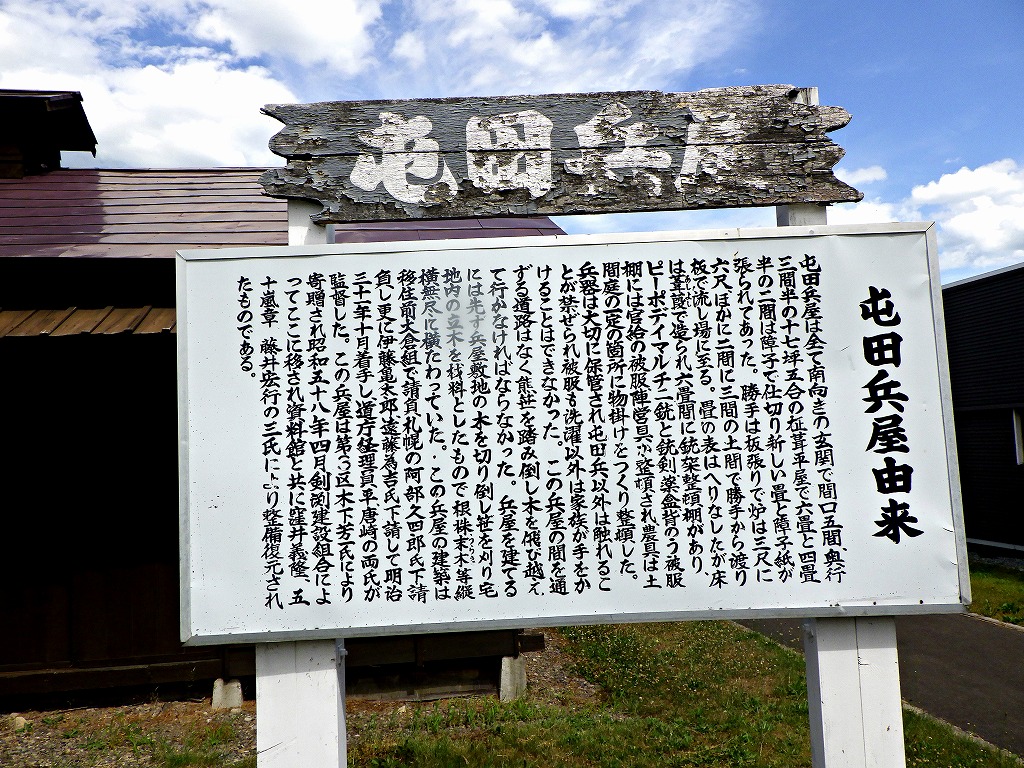 屯田兵屋
屯田兵屋由来
屯田兵屋は全て南向きの玄関で間口五間、奥行
三間半の十七坪五合の柾葺平屋で六畳と四畳
半の二間は障子で仕切り新しい畳と障子紙が
張られてあった。勝手は板張りで炉は三尺に
六尺、ほかに二間に三間の土間で勝手から渡り
板で流し場に至る。畳の表はへりなしたが床
は葦葭で造られ六畳間に銃架整頓棚があり
ピーボデイマルチニ銃と銃剣薬盒背のう被服
棚には官給の被服陣営具が整頓され農具は土
間庭の一定の箇所に物掛けをつくり整頓した。
兵器は大切に保管され屯田兵以外は触れるこ
とが禁ぜられ被服も洗濯以外は家族が手をか
けることはできなかった。この兵屋の間を通
ずる道路はなく熊笹を踏み倒し木を飛び越え
て行かなければならなかった。兵屋を建てる
には先ず兵屋敷地の木を切り倒し笹を刈り宅
地内の立木を材料としたもので根株末木等縦
横無尽に横たわっていた。この兵屋の建築は
移住前大倉組で請負札幌の阿部久四郎氏下請
負し更に伊藤亀太郎、遠藤為吉氏下請して明治
三十一年十月着手し道庁経理員平唐崎の両氏が
監督した。この兵屋は第3区木下芳一氏により
寄贈され昭和五十八年四月剣渕建設組合によ
ってここに移され資料館と共に窪井義隆、五
十嵐章 藤井宏行の三氏により整備復元され
たものである。